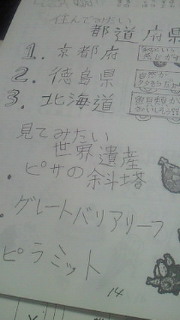 住んでみたい
都道府県
1. 京都府
2. 徳島県
3. 北海道
見てみたい
世界遺産
・ピサの斜塔
・グレートバリアリーフ
ピラミット
14